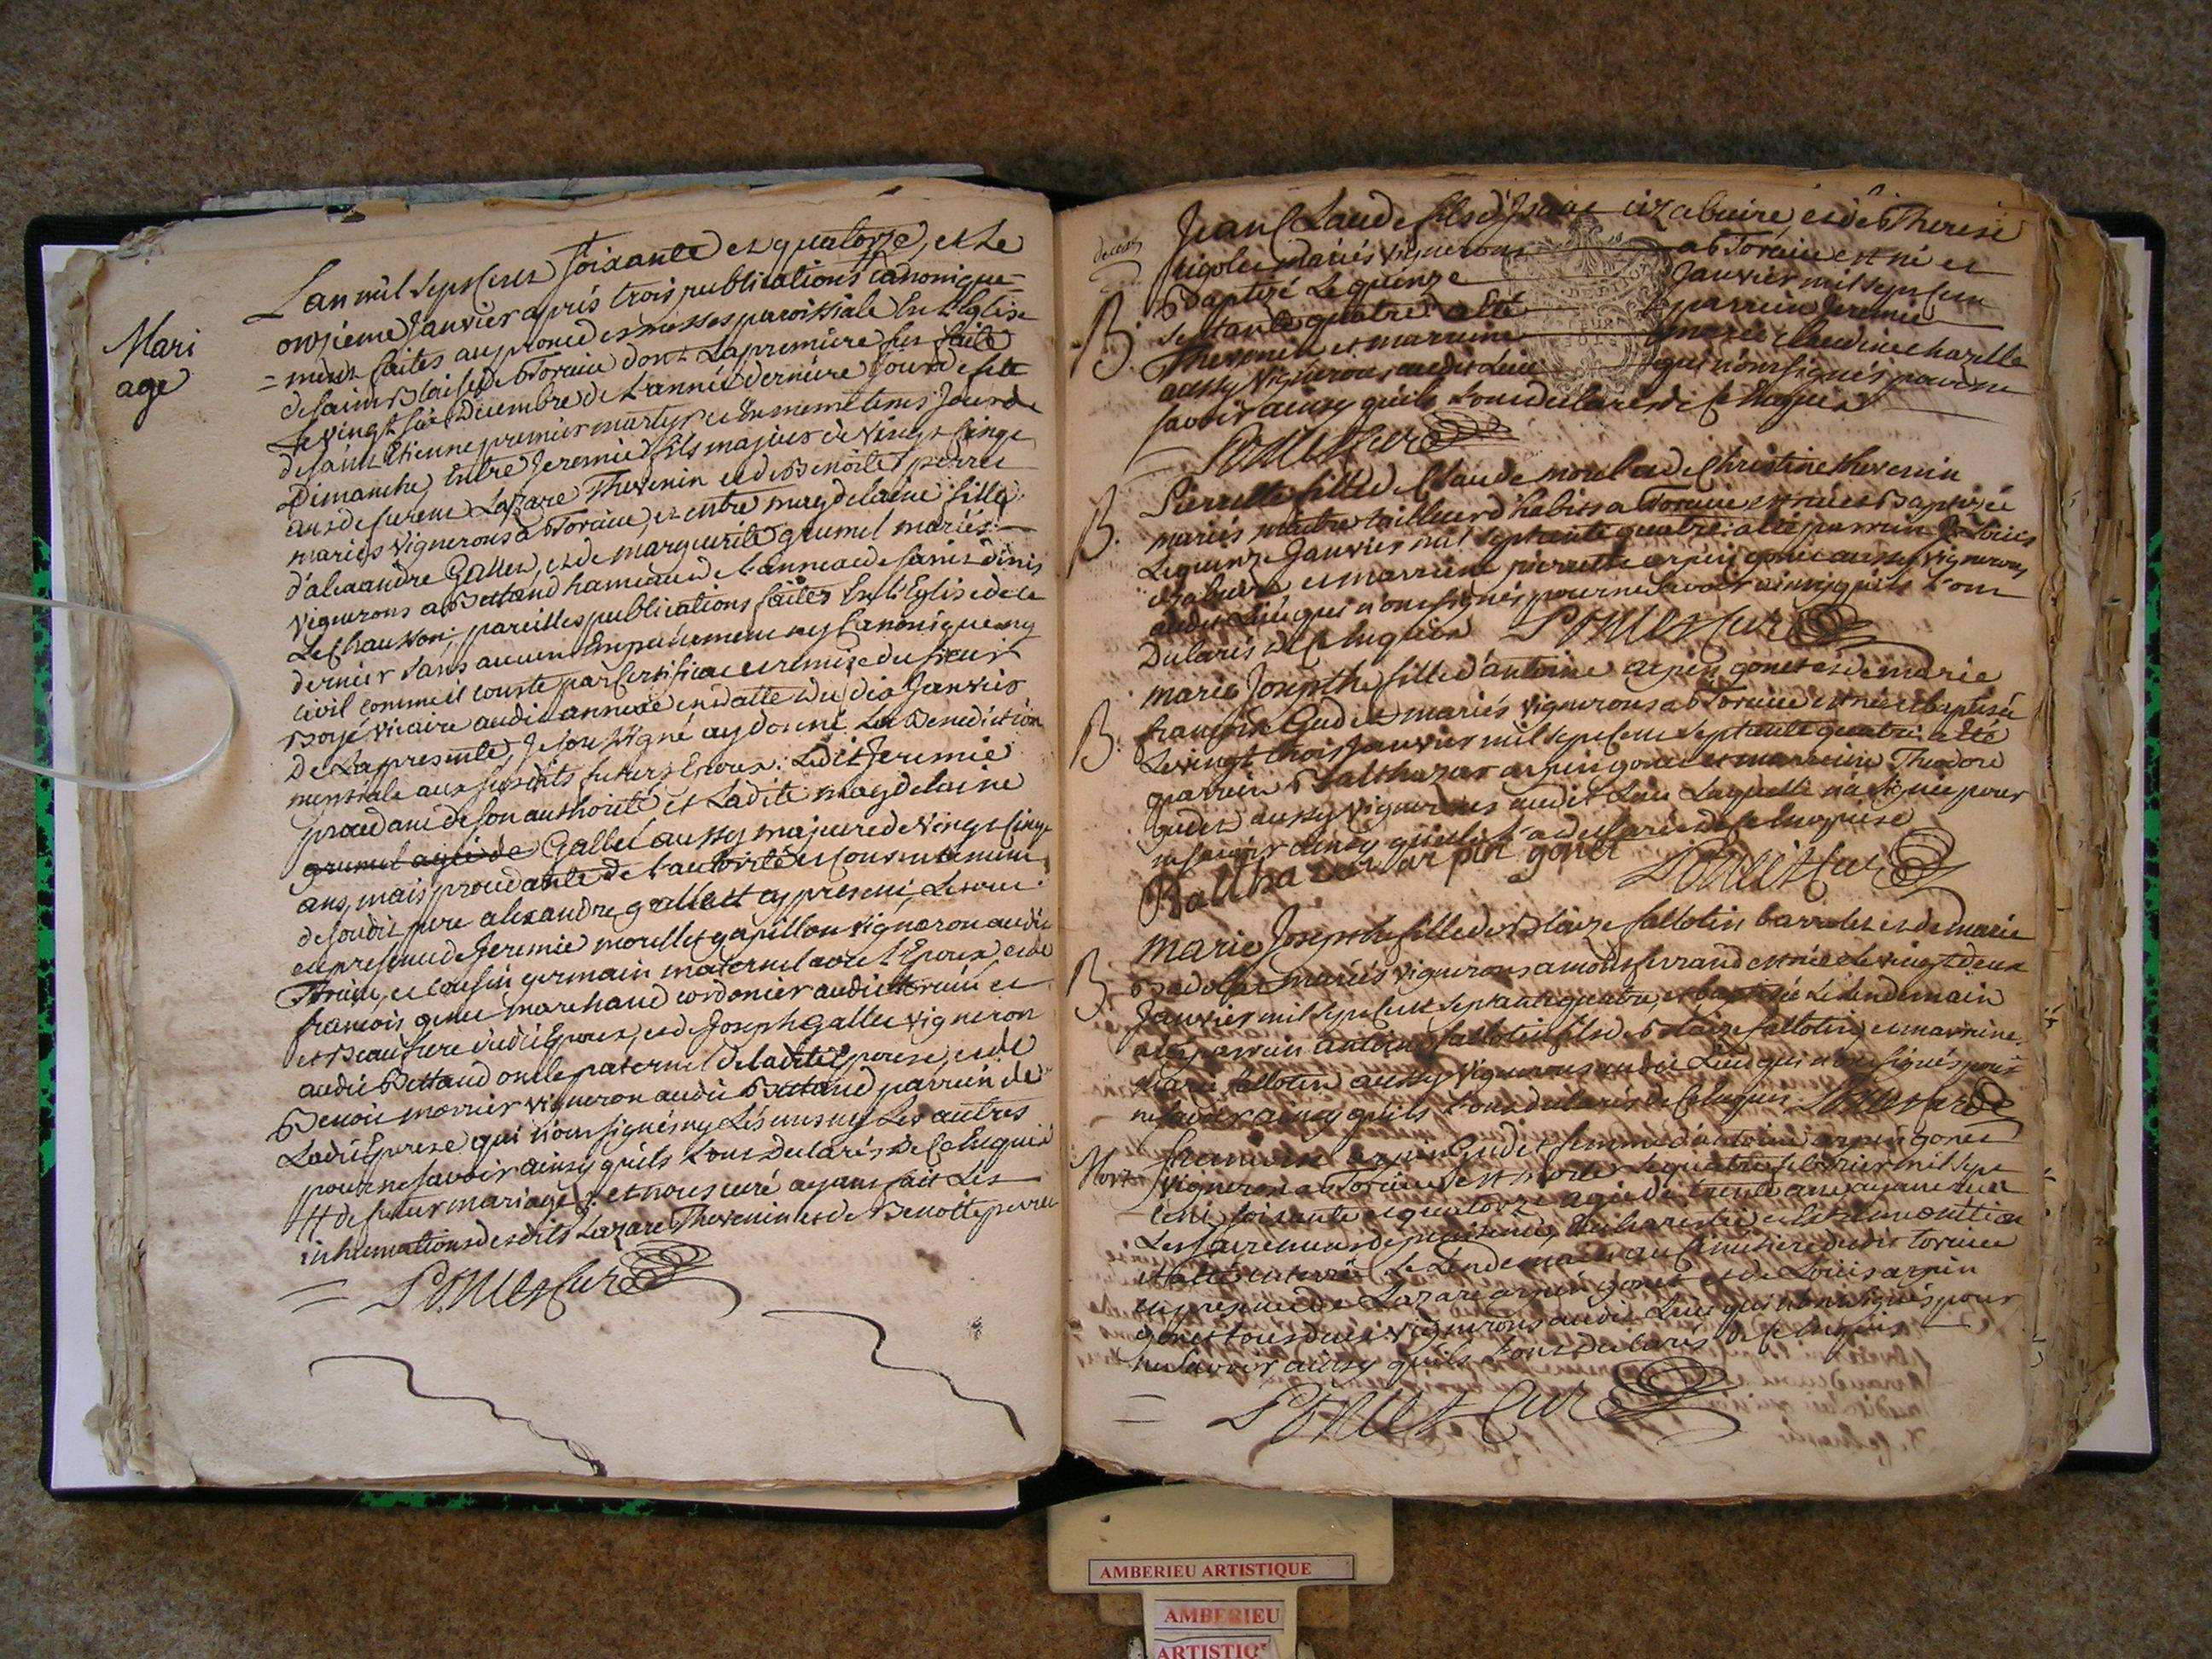 Mari
age
L'an mil sept cent soixante et quatorze, et le
onzieme Janvier après trois publications canonique=
=ment faites au prone des messes paroissiale En L'Eglise
de saint Blaise de Torcieu dont La premiere fut faite
Le vingt six decembre de L'année derniere Jour de fete
de saint Etienne premier martyr et En meme tems Jour de
Dimanche, Entre Jeremie fils majeur de vingt cinq
ans de furent Lazare Thevenin et de Benoite perret
mariés vignerons a Torcieu, et entre magdelaine fille
d'alexandre Gallet, et de marguerite grumel mariés
vignerons a Bettand hameau de L'annexe de saint Denis
Le Chausson: pareilles publications faites En L'Eglise de ce
dernier sans aucun Empechement ny Canonique ny
civil comme il conste par Certificat et remise du sieur
Boyé vicaire audit annexe en datte du dix Janvier
De La presente, Je soussigné ay donné La Benediction
nuptiale aux susdits futurs Epoux: Ledit Jeremie
procedant de son authorité et Ladite magdelaine
grumel agée de Gallet aussy majeure de vingt cinq
ans, mais procedante de L'autorité et consentement
de sondit pere alexandre gallet cy present, Le tout
en presence de Jeremie morellet papillon vigneron audit
Torcieu, et cousin germain maternel dudit Epoux, et de
francois genet marchand cordonier audit Torcieu et
et Beaufrere dudit Epoux, et de Joseph gallet vigneron
audit Bettand oncle paternel de ladite Epouse, et de
Benoit morrier vigneron audit Bettand parrein de
Ladite Epouse qui n'ont signé ny Les uns ny Les autres
pour ne savoir ainsy qu'ils L'ont declarés de Ce Enquis
# de futur mariage: et nous curé ayant fait Les
inhumations desdits Lazare Thevenin et de Benoitte perret
= Ponçet Curé
Jean Claude fils d'Isaac cizabuire et de Therese
rigolet mariés vignerons a Torcieu est né et
B. Baptizé Le quinze Janvier mil sept cent
septante quatre: a Eté parrein Jeremie
Thevenin et marreine marie Claudine charelle
aussy vignerons audit Lieu qui n'ont signés pour ne
savoir ainsy qu'ils L'ont declarés de Ce Enquis
= Ponçet Curé
Pierrette fille de Claude moulin et de Christine thevenin
B. mariés maitre tailleur d'habits a Torcieu est née et Baptizée
Le quinze Janvier mil septante quatre: a Eté parrein Louis
cizabuire et marreine pierrette arpin gonet aussy vignerons
audit Lieu qui n'ont signés pour ne savoir ainsy qu'ils L'ont
Declarés de Ce Enquis Ponçet Curé
marie Josepthe fille d'antoine arpin gonet et de marie
B. francoise Gudet mariés vignerons a Torcieu est née et baptisée
Le vingt trois Janvier mil sept cent septante quatre: a Eté
parrein Balthazar arpin gonet et marreine Theodore
Gudet aussy vignerons audit Lieu Laquelle n'a signé pour
ne savoir ainsy qu'elle L'a declaré de Ce Enquise
Balthazar arpin gonet Ponçet Curé
marie Josepthe fille de Blaize fallotin barrolet et de marie
B. Badolset mariés vignerons a montferrand est née Le vingt deux
Janvier mil sept cent septante quatre, et baptisée Le Lendemain
a Eté parrein antoine fallotin fils de Blaize fallotin et marreine
marie fallotin aussy vignerons audit Lieu qui n'ont signés pour
ne savoir ainsy qu'ils L'ont declarés de Ce Enquis Ponçet Curé
Mort francoise Gudet femme d'antoine arpin gonet
vigneron a Torcieu Est morte Le quatre fevrier mil sept
cent soixante et quatorze agée de trente ans ayant recu
Les sacremens de penitence, Eucharistie et Extremeonction
et a Eté enterrée Le Lendemain au Cimetiere dudit Torcieu
en presence de Lazare arpin gonet et de Louis arpin
gonet tous deux vignerons audit Lieu qui n'ont signés pour
ne savoir ainsy qu'ils L'ont declarés de Ce Enquis
= Ponçet Curé
AMBERIEU ARTISTIQUE
AMBERIEU
ARTISTIQ